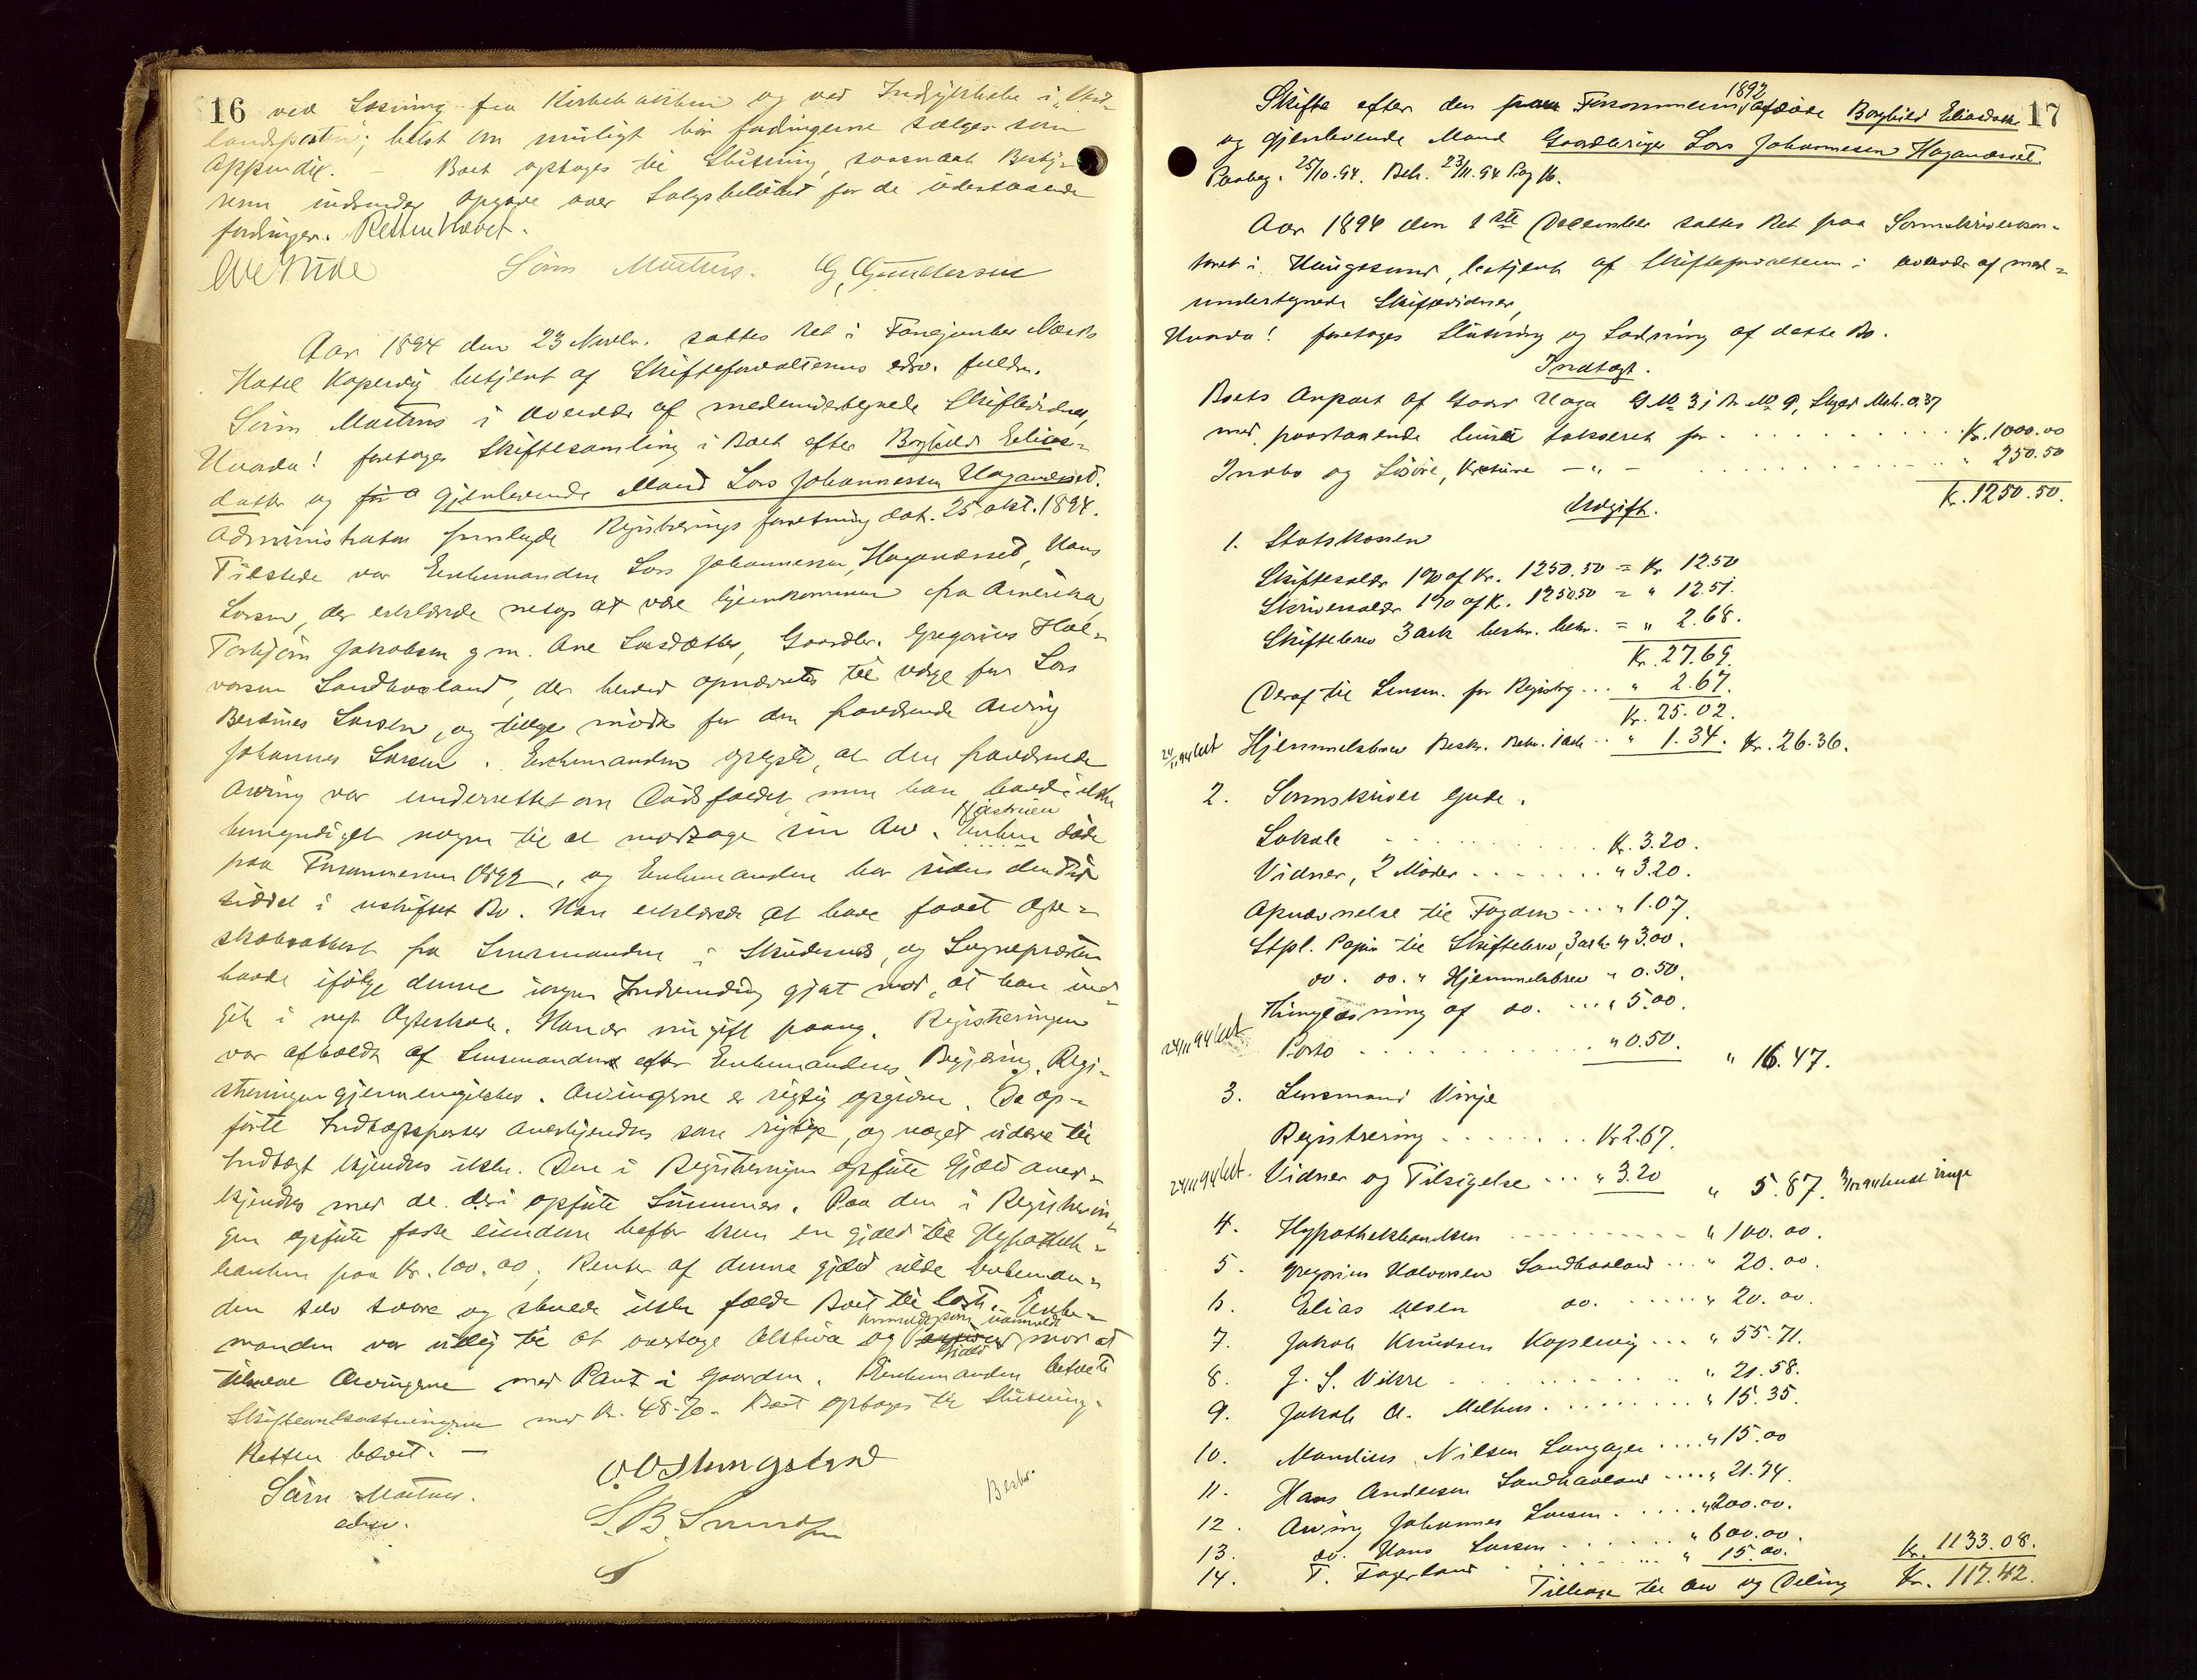 16
ved Læsning fra Kirkebakken og ved Indrykkelse i "Vest-
landsposten"; helst om muligt bør fordringerne sælges som
Appendix. - Boet optages til Slutning, saasnart Besty-
reren indsender Opgave over Salgsbeløbet for de udestaaende
fordringer. Retten hævet.
Sørn Mortens. G. Gundersen
Aar 1894 den 23 Novbr. sattes Ret i Frønejomber Næsets
Hotel Kopervig betjent af Skifteforvalterens edsv. fuldm.
Sørn Mortens i overvær af medundertegnede Skiftevidner,
Hvorda! foretoges Skiftesamling i Boet efter Borghild Elias-
datter og gjenlevende Mand Lars Johannessen Haganæsset.
Administrator fremlagde Registreringsforretning dat. 25 okt. 1894.
Tilstede var Enkemanden Lars Johannessen Haganæsset, Hans
Larsen, der erklærede netop at være hjemkommen fra Amerika,
Torbjørn Jakobsen g. m. Ane Larsdatter, Gaardbr. Gregorius Hal-
vorsen Sandhaaland, der herved opnævntes til værge for Lars
Berdines Larsen, og tillige mødte for den fraværende Arving
Johannes Larsen. Enkemanden oplyste, at den fraværende
Arving var underrettet om Dødsfaldet, men han havde ikke
bemyndiget nogen til at modtage sin Arv. Hustruen døde
paa Forsommeren 1892, og Enkemanden har siden den Tid
siddet i uskiftet Bo. Han erklærede at have faaet Ægte-
skabsattest fra Lensmanden i Skudesnes, og Sognepræsten
havde ifølge denne ingen Indvending gjort mod, at han ind-
gik i nyt Ægteskab. Han er nu gift paany. Registreringen
var afholdt af Lensmanden efter Enkemandens Begjæring. Regi-
streringen gjennemgikkes. Arvingerne er rigtig opgivne. De op-
førte Indtægtsposter anerkjendtes som rigtige, og noget videre til
Indtægt kjendtes ikke. Den i Registreringen opførte Gjæld aner-
kjendtes med de deri opførte Summer. Paa den i Registrerin-
gen opførte faste eiendom hefter kun en gjæld til Hypothek-
banken paa Kr. 100.00; Renter af denne gjæld vilde Enkeman-
den selv svare og skulde ikke falde Boet til Last. Enke-
manden var villig til at overtage Aktiva og anmeldt Gjæld mod at
tilsvare Arvingerne med Pant i Gaarden. Enkemanden betalte
Skifteomkostningerne med Kr. 48.70. Boet optages til Slutning.
Retten hævet. -
Sørn Mortens.
edsv.
O. O. Stangeland
Beskr.
17
Skifte efter den Forsommeren 1892 afdøde Borghild Eliasdatter
og gjenlevende Mand Gaardbruger Lars Johannesen Haganæsset.
Paabeg. 25/10.94. Beh. 23/11.94 Pag 16.
Aar 1894 den 1ste December sattes Ret paa Sorenskriverkon-
toret i Haugesund, betjent af Skifteforvalteren i overvær af med-
undertegnede Skiftevidner,
Hvorda! foretoges Slutning og Lodning af dette Bo.
Indtægt.
Boets Anpart af Gaard Haga G No 31 B. No 9, Skyld Mrk. 0.37
med paastaaende huse taxeret for . . . . . Kr. 1000.00
Indbo og Løsøre, Kreature - " - . . . . . " 250.50
Kr. 1250.50.
Udgift.
1. Statskassen
Skiftesalær 1% af Kr. 1250.50 = Kr 12.50
Skriversalær 1% af Kr. 1250.50 = " 12.51.
Skiftebrev 3 ark beskr. bekr. = " 2.68.
Kr. 27.69.
Deraf til Lensm. for Registrg. . . " 2.67.
Kr. 25.02.
Hjemmelsbrev Beskr. Bekr. 1 ark . . " 1.34. Kr. 26.36.
2. Sorenskriver Gude.
Lokale . . . . . Kr. 3.20.
Vidner, 2 Møder . . . . . " 3.20.
Opnævnelse til Fogden . . . " 1.07.
Stpl. Papir til Skiftebrev, 3 ark " 3.00.
do. do. " Hjemmelsbrev " 0.50.
Thinglæsning af do. . . . " 5.00.
24/11 94 bet. Porto . . . . . " 0.50. " 16.47.
3. Lensmand Vinje
Registrering . . . . . Kr 2.67.
24/11 94 bet. Vidner og Tilsigelse . . . " 3.20 " 5.87.
4. Hypothekbanken . . . . . " 100.00.
5. Gregorius Halvorsen Sandhaaland . . . " 20.00.
6. Elias Olsen do. . . . . . " 20.00.
7. Jakob Knudsen Kopervig . . . " 55.71.
8. J. S. Vikre . . . . . " 21.58.
9. Jakob A. Melhus . . . . . " 15.35.
10. Mandius Nilsen Langager . . . . " 15.00
11. Hans Andersen Sandhaaland . . . . " 21.74.
12. Arving Johannes Larsen . . . . . " 200.00.
13. do. Hans Larsen . . . . . " 600.00.
14. T. Fagerland . . . . . " 15.00. Kr. 1133.08.
Tilbage til Arv og Deling Kr. 117.42.